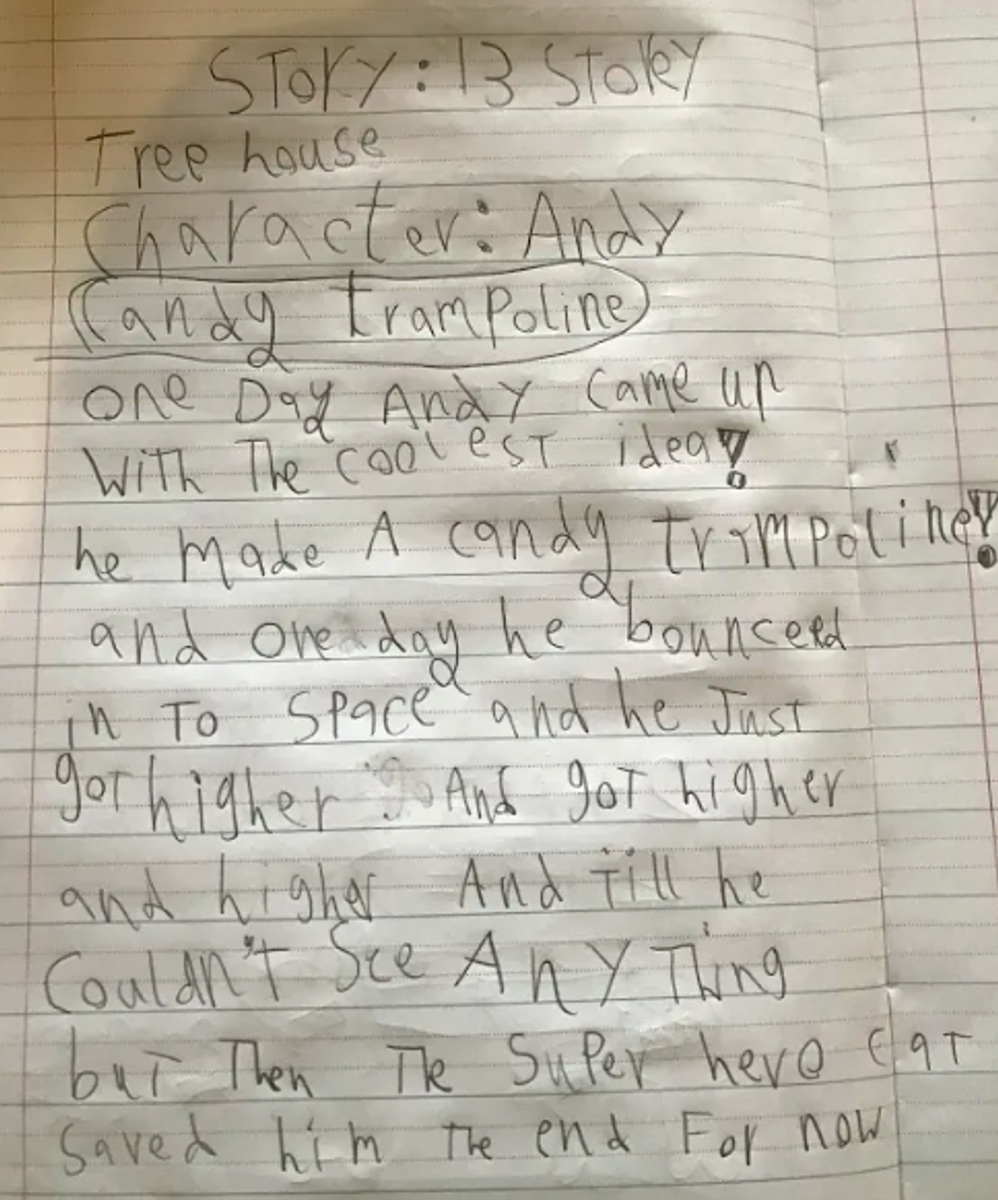 STORY: 13 STOREY
Tree house
Character: Andy
Candy trampoline
one Day Andy came up
with The coolest idea!
he make A candy trampoline!
and one day he bounceed
in To Space and he Just
got higher And got higher
and higher And Till he
Couldn't See AnyThing
but Then The Super hero cat
Saved him The end For now